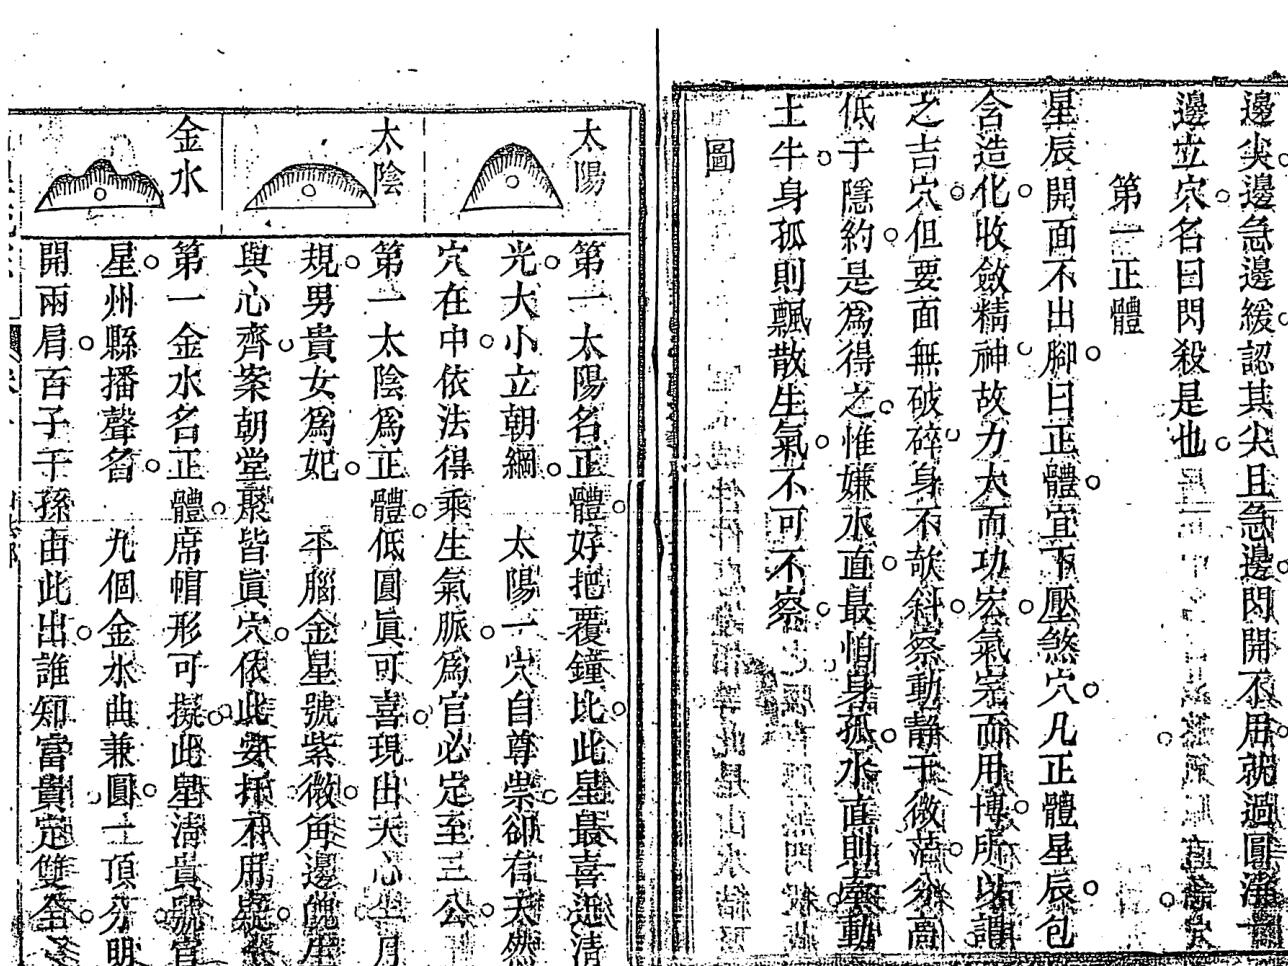 邊尖邊急邊緩認其尖且急邊閃開不用就過圓淨一
邊立穴名曰閃殺是也
第一正體
星辰開面不出腳曰正體宜下壓煞穴凡正體星辰包
含造化收斂精神故力大而功宏氣完而用博所以謂
之吉穴但要面無破碎身不欹斜察動靜于微茫分高
低于隱約是爲得之惟嫌水直最怕身孤水直則牽動
土牛身孤則飄散生氣不可不察
圖
太陽
太陰
金水
第一太陽名正體好把覆鐘比此星最喜近清
光大小立朝綱 太陽一穴自尊崇卻有天然
穴在中依法得乘生氣脈爲官必定至三公
第一太陰爲正體低圓眞可喜現出天心半月
規男貴女爲妃 平腦金星號紫微角邊
與心齊案朝堂聚皆眞穴依此安扦不用疑
第一金水名正體席帽形可擬此星清貴號官
星州縣播聲名 九個金水曲兼圓一頂分明
開兩肩百子千孫由此出誰知富貴定雙全